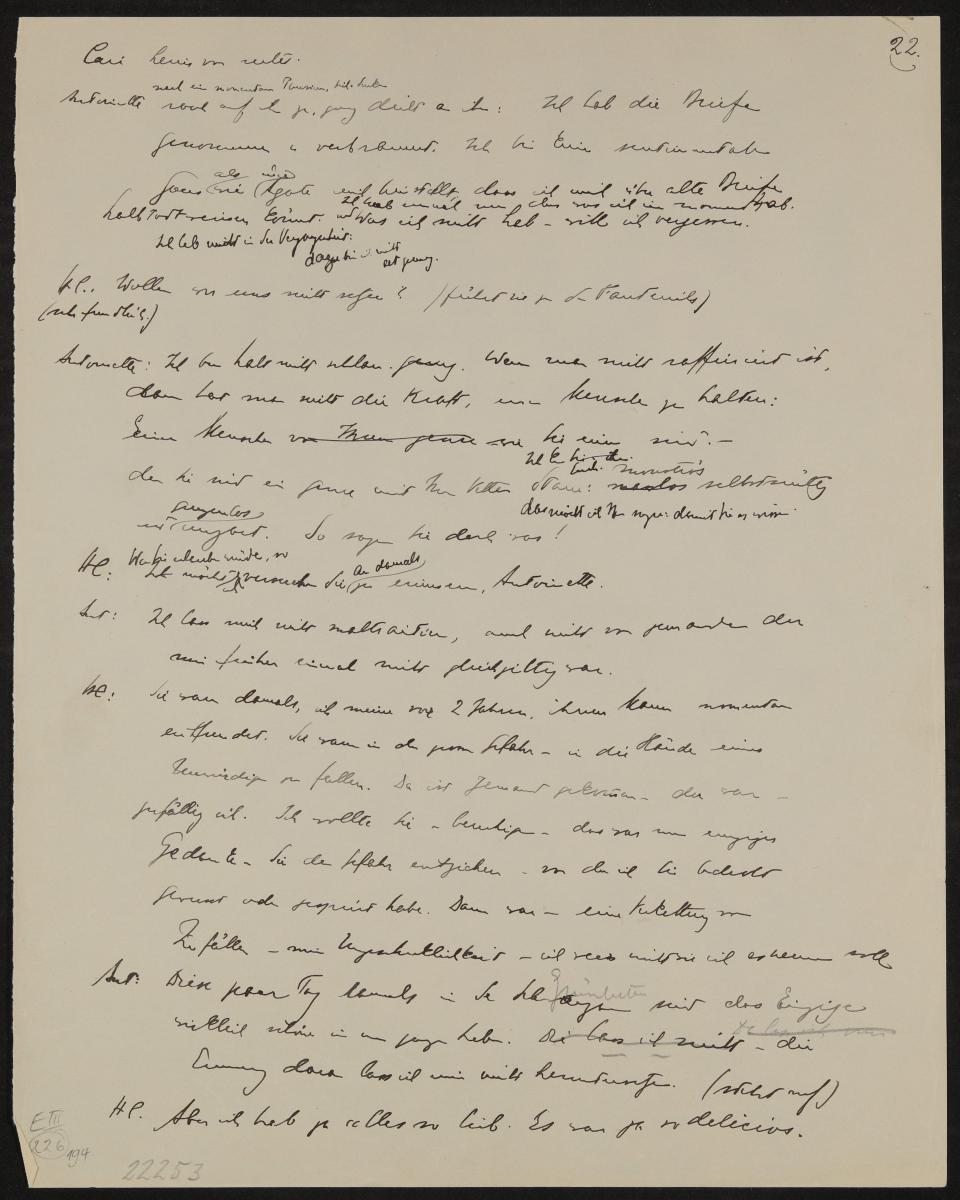 22.
Cari herein von rechts.
Antoinette rasch auf ihn zu, ganz dicht an ihm: Ich hab die Briefe
genommen u verbrannt. Ich bin keine sentimentale
Gans als die Agathe mich hinstellt, dass ich mich über alte Briefe
halbtot weinen könnt. Ich hab einmal nur das was ich im moment hab.
und was ich nicht hab – will ich vergessen.
Ich leb nicht in der Vergangenheit:
dazu bin ich nicht
alt genug.
HC. Wollen wir uns nicht setzen? (führt sie zu den Fauteuils)
(sehr freundlich.)
Antoinette: Ich bin halt nicht schlau genug. Wenn man nicht raffiniert ist,
dann hat man nicht die Kraft, einen Menschen zu halten:
Einen Menschen wie Sie einer sind. –
denn Sie sind ein genre mit Ihrem Vetter Stani: monströs selbstsüchtig
das möcht ich Ihnen sagen: damit Sie es wissen.
und grenzenlos
So sagen Sie doch was!
HC: Wenn Sie erlauben würden, so
möcht ich versuchen Sie an damals zu erinnern, Antoinette.
Ant: Ich lass mich nicht maltraitieren, auch nicht von jemandem der
mir früher einmal nicht gleichgiltig war.
HC: Sie waren damals, ich meine vor 2 Jahren, ihrem Mann momentan
entfremdet. Sie waren in der grossen Gefahr – in die Hände eines
Unwürdigen zu fallen. Da ist jemand gekommen – der war –
zufällig ich. Ich wollte Sie – beruhigen – das war mein einziger
Gedanke – Sie der Gefahr entziehen – von der ich Sie bedroht
gewusst oder gespürt habe. Dann war – eine Verkettung von
Zufällen – eine Ungeschicklichkeit – ich weiss nicht wie ich es nennen soll
Ant: Diese paar Tag damals in der Grünleiten sind das Einzige
wirklich schöne in meinem ganzen Leben. Die lass ich nicht – die
Erinnerung daran lass ich mir nicht heruntersetzen. (steht auf)
HC. Aber ich hab ja alles so lieb. Es war ja so delicios.
E III
226
194
22253